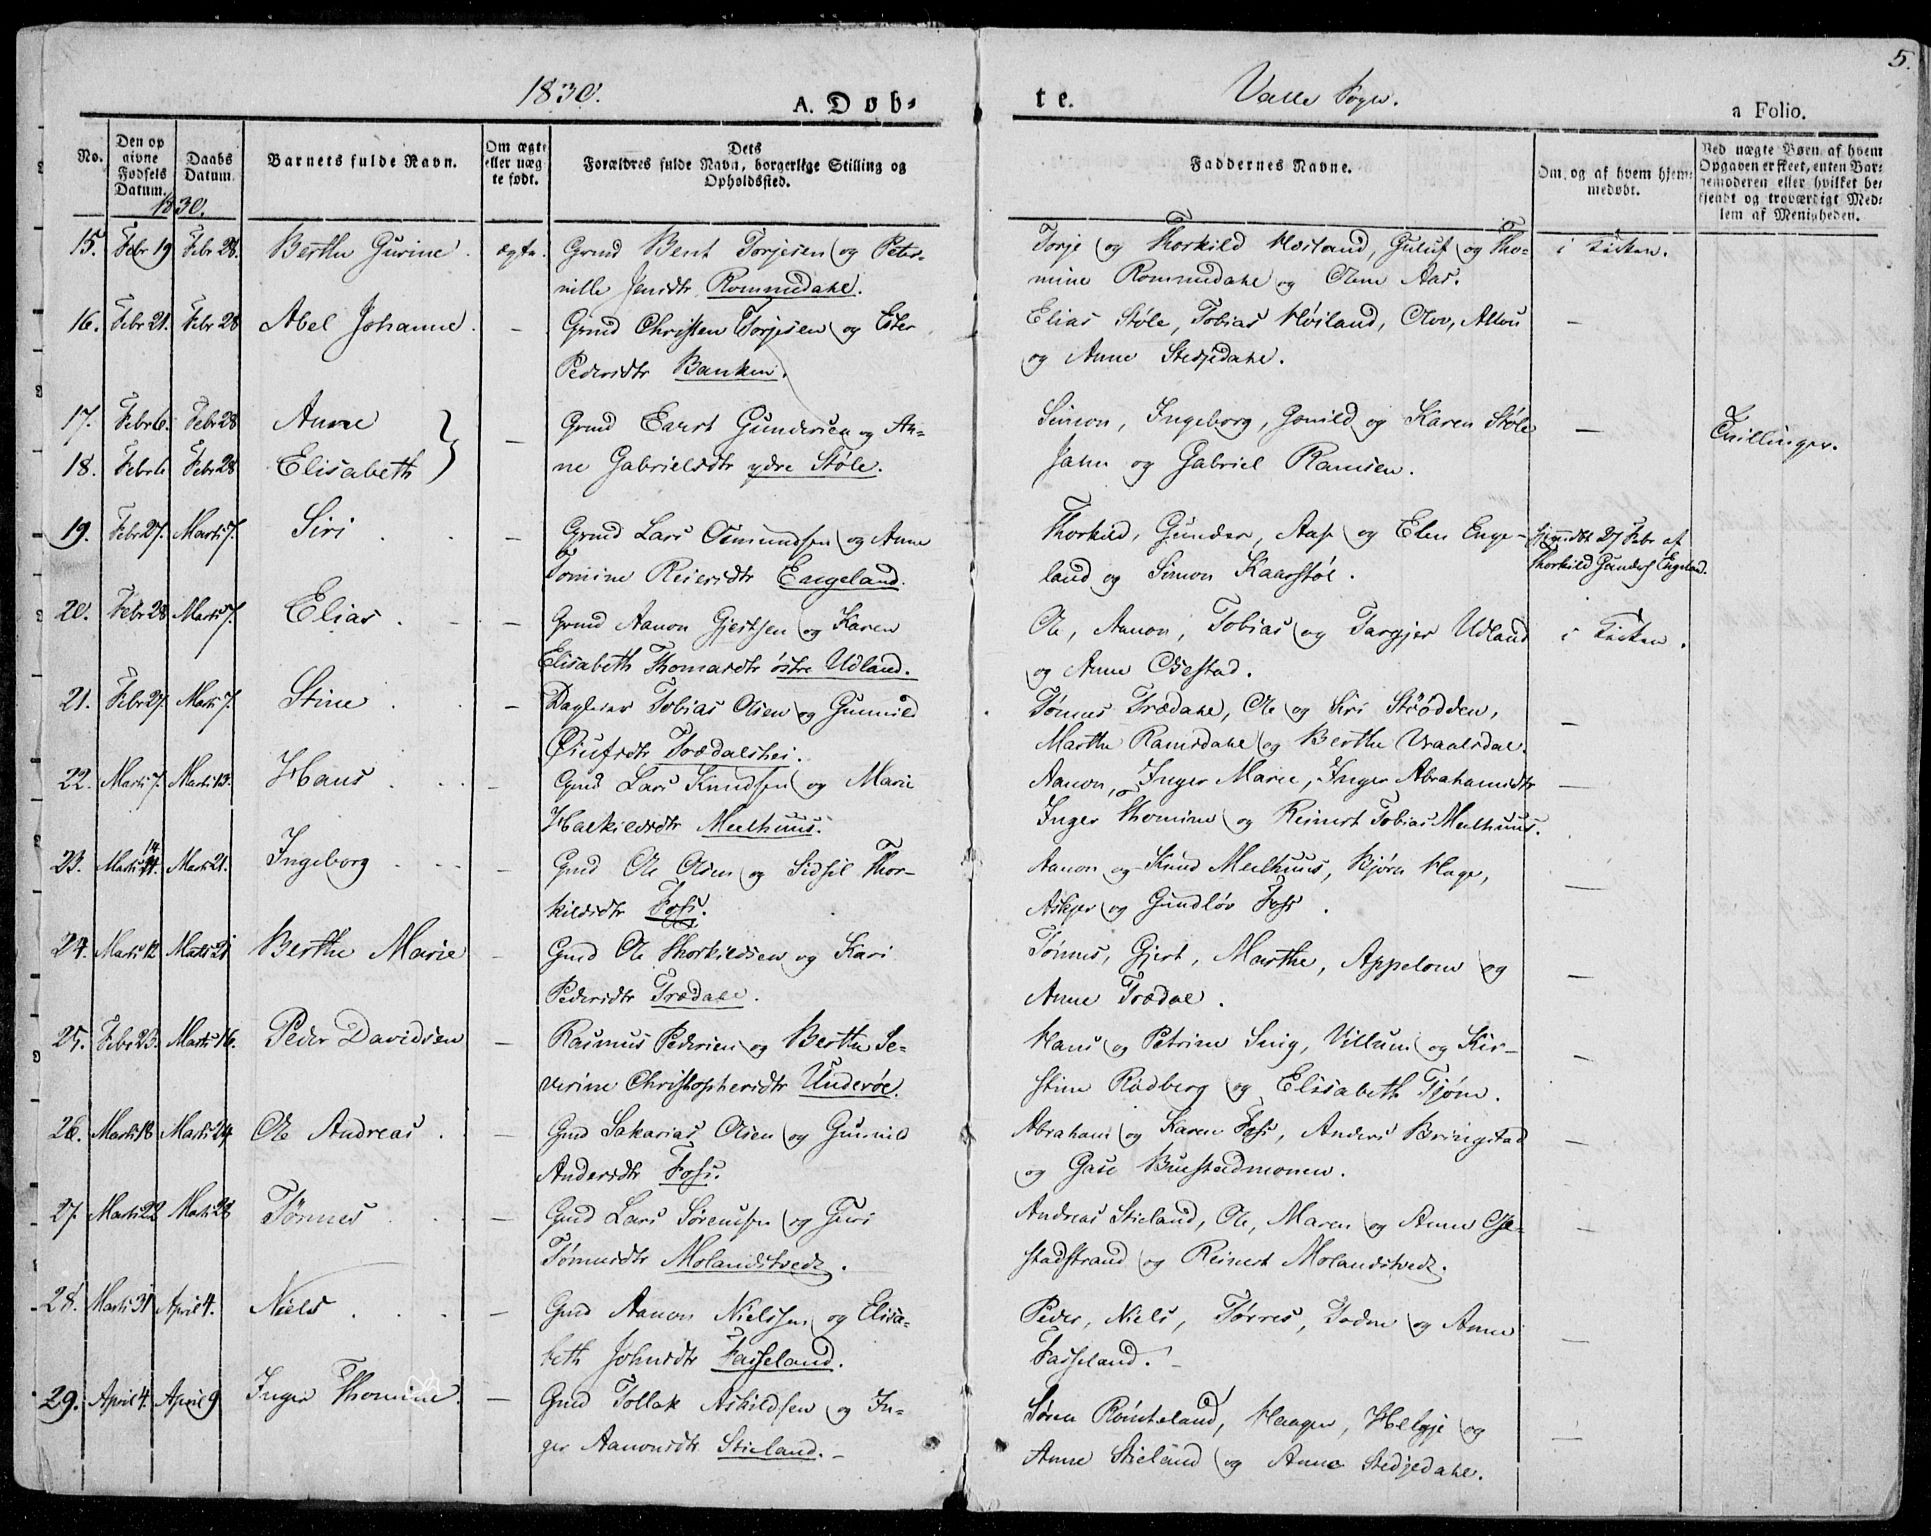 5.
1830. A. Døb- te. Valle Sogn. a Folio.
No. Den opgivne Fødsels Datum. Daabs Datum. Barnets fulde Navn. Om ægte eller uægte født. Dets Forældres fulde Navn, borgerlige Stilling og Opholdssted. Faddernes Navne. Om, og af hvem hjemmedøbt. Ved uægte Børn af hvem Opgaven er skeet, enten Barnemoderen eller hvilket bekjendt og troværdigt Medlem af Menigheden.
1830.
15. Febr 19 Febr 28. Berthe Gurine. ægte. Grmd Bent Torjesen og Peter- Torje og Thorkild Høiland, Guluf og Tho- i Kirken.
nille Jensdtr Rommedahl. mine Rommedahl og Anne Aas.
16. Febr 21. Febr 28 Abel Johanne. — Grmd Christen Torjesen og Ester Elias Støle, Tobias Høiland, —
Pedersdtr Banken. og Anne Stedjedahl.
17. Febr 6. Febr 28 Anne — Grmd Gundersen og An- Simon, Ingeborg, Gonild og Karen Støle — Tvillinger.
18. Febr 6 Febr 28 Elisabeth ne Gabrielsdtr ydre Støle. Jahn og Gabriel Ramsen.
19. Febr 27. Marti 7. Siri — Grmd Lars Osmundsen og Anne Thorkild, Gunder, Aase og Elen Enge- Hjmdbt 27 Febr af
Tomine Reiersdtr Engeland. land og Simon Kaarstøl. Thorkild Gunders Engeland.
20. Febr 28 Marti 7. Elias — Grmd Aanon Gjertsen og Karen Ole, Aanon, Tobias og Targjer Udland i Kirken.
Elisabeth Thomasdtr østre Udland. og Anne Osestad.
21. Febr 27. Marti 7. Stine — Daglejer Tobias Olsen og Gunnild Tønnes Trædahl, Ole og Siri Strødden, —
Øiufsdtr Trædalshei. Marthe Ramsdahl og Berthe Vraalsdal.
22. Marti 7. Marti 13. Hans — Gmd Lars Knudsen og Marie Aanon, Inger Marie, Inger Abrahamsdtr —
Halkildsdtr Meelhuus. Inger Thomine og Reinert Tobias Meelhuus.
23. Marti 14. Marti 21. Ingeborg — Gmd Ole Olsen og Sidsil Thor- Aanon og Knud Meelhuus, Bjørn Hage, —
kildsdtr Foss. Askjer og Gundløv Foss.
24. Marti 12 Marti 21 Berthe Marie — Gmd Ole Thorkildsen og Kari Tønnes, Gjert, Marthe, Appelone og —
Pedersdtr Trædale. Anne Trædal.
25. Febr 23. Marti 16. Peder Davidsen — Rasmus Pedersen og Berthe Se- Hans og Petrine Snig, Villum og Kir- —
verine Christophersdtr Underøe. stine Rødberg og Elisabeth Tjøm.
26. Marti 18 Marti 24 Ole Andreas — Gmd Sakarias Olsen og Gunnild Abraham og Karen Foss, Anders Bringstad —
Andersdtr Foss. og Gase Buestadmonen.
27. Marti 22 Marti 28 Tønnes — Gmd Lars Sørensen og Guri Andreas Stieland, Ole, Maren og Anne Ose- —
Tønnesdtr Molandstvedt. stadstrand og Reinert Molandstvedt.
28. Marti 31 April 4. Niels — Gmd Aanon Nielssen og Elisa- Peder, Niels, Tørres, Todne og Anne —
beth Johnsdtr Fasseland. Fasseland.
29. April 4. April 9 Inger Thomine. — Gmd Tollak Askildsen og In- Søren Rønteland, Haagen, Helgje og —
ger Aanonsdtr Stieland. Anne Stieland og Anne Stedjedahl.